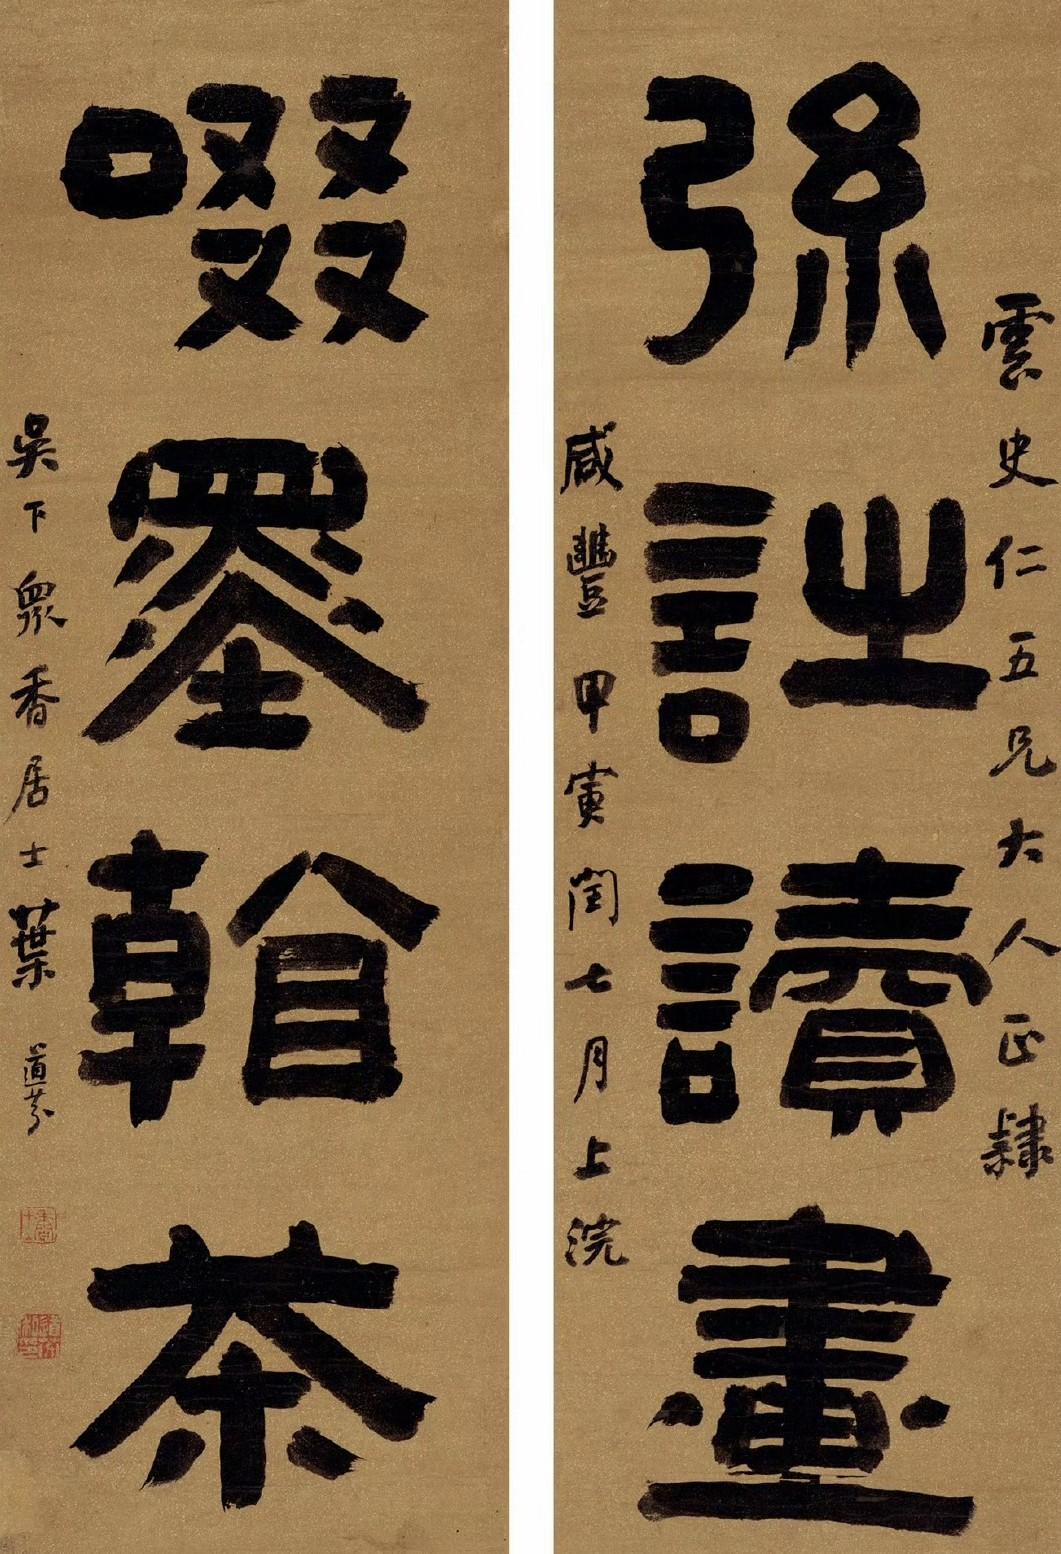 雲史仁五兄大人正隸
弦詩讀畫
咸豐甲寅閏七月上浣
啜墨看茶
吳下眾香居士葉道芬